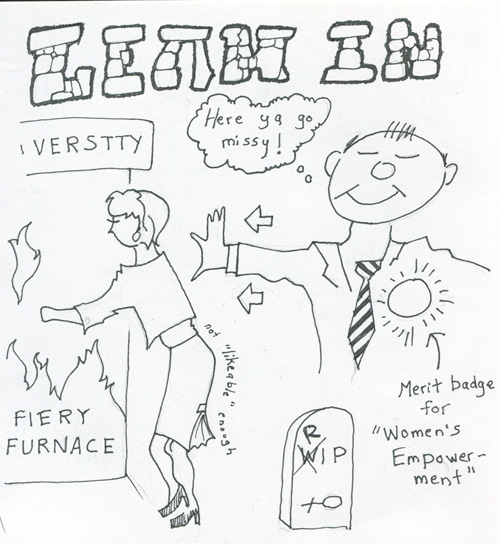 LEAN IN
Here ya go
missy!
IVERSTTY
not "likeable" enough
FIERY
FURNACE
R
WIP
Merit badge
for
"Women's
Empower-
ment"